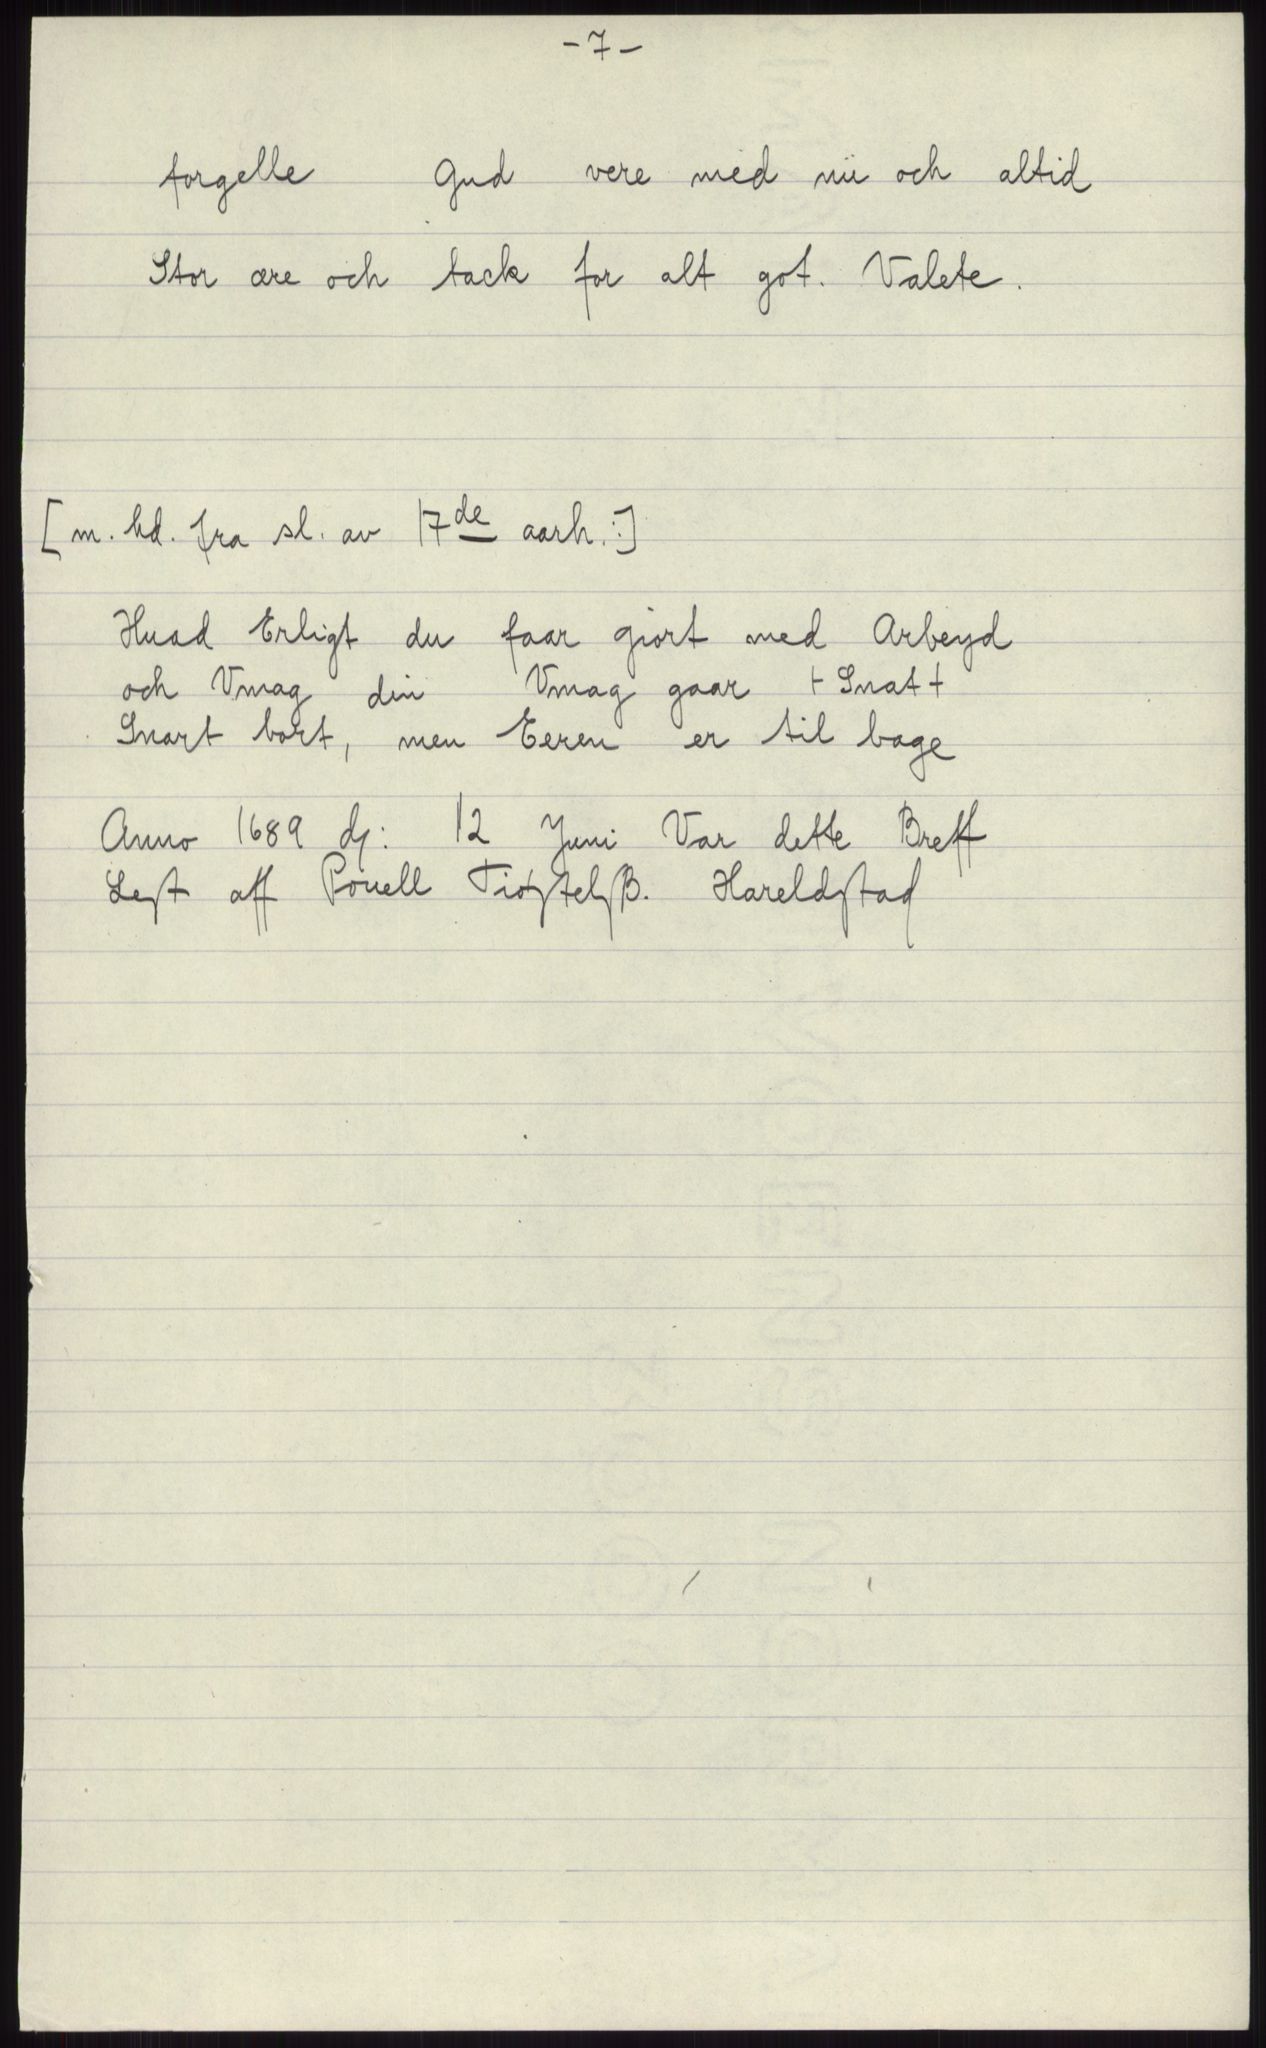 - 7 -
forgelle Gud vere med nu och altid
Stor ære och tack for alt got. Valete.
[m. hd. fra sl. av 17de aarh.:]
Huad Erligt du faar giort med Arbeyd
och Vmag din Vmag gaar + Snat +
Snart bort, men Eeren er til bage
Anno 1689 dſ: 12 Juni Var dette Breff
Leſt aff Pouell Tioſtelſß. Hareldſtad